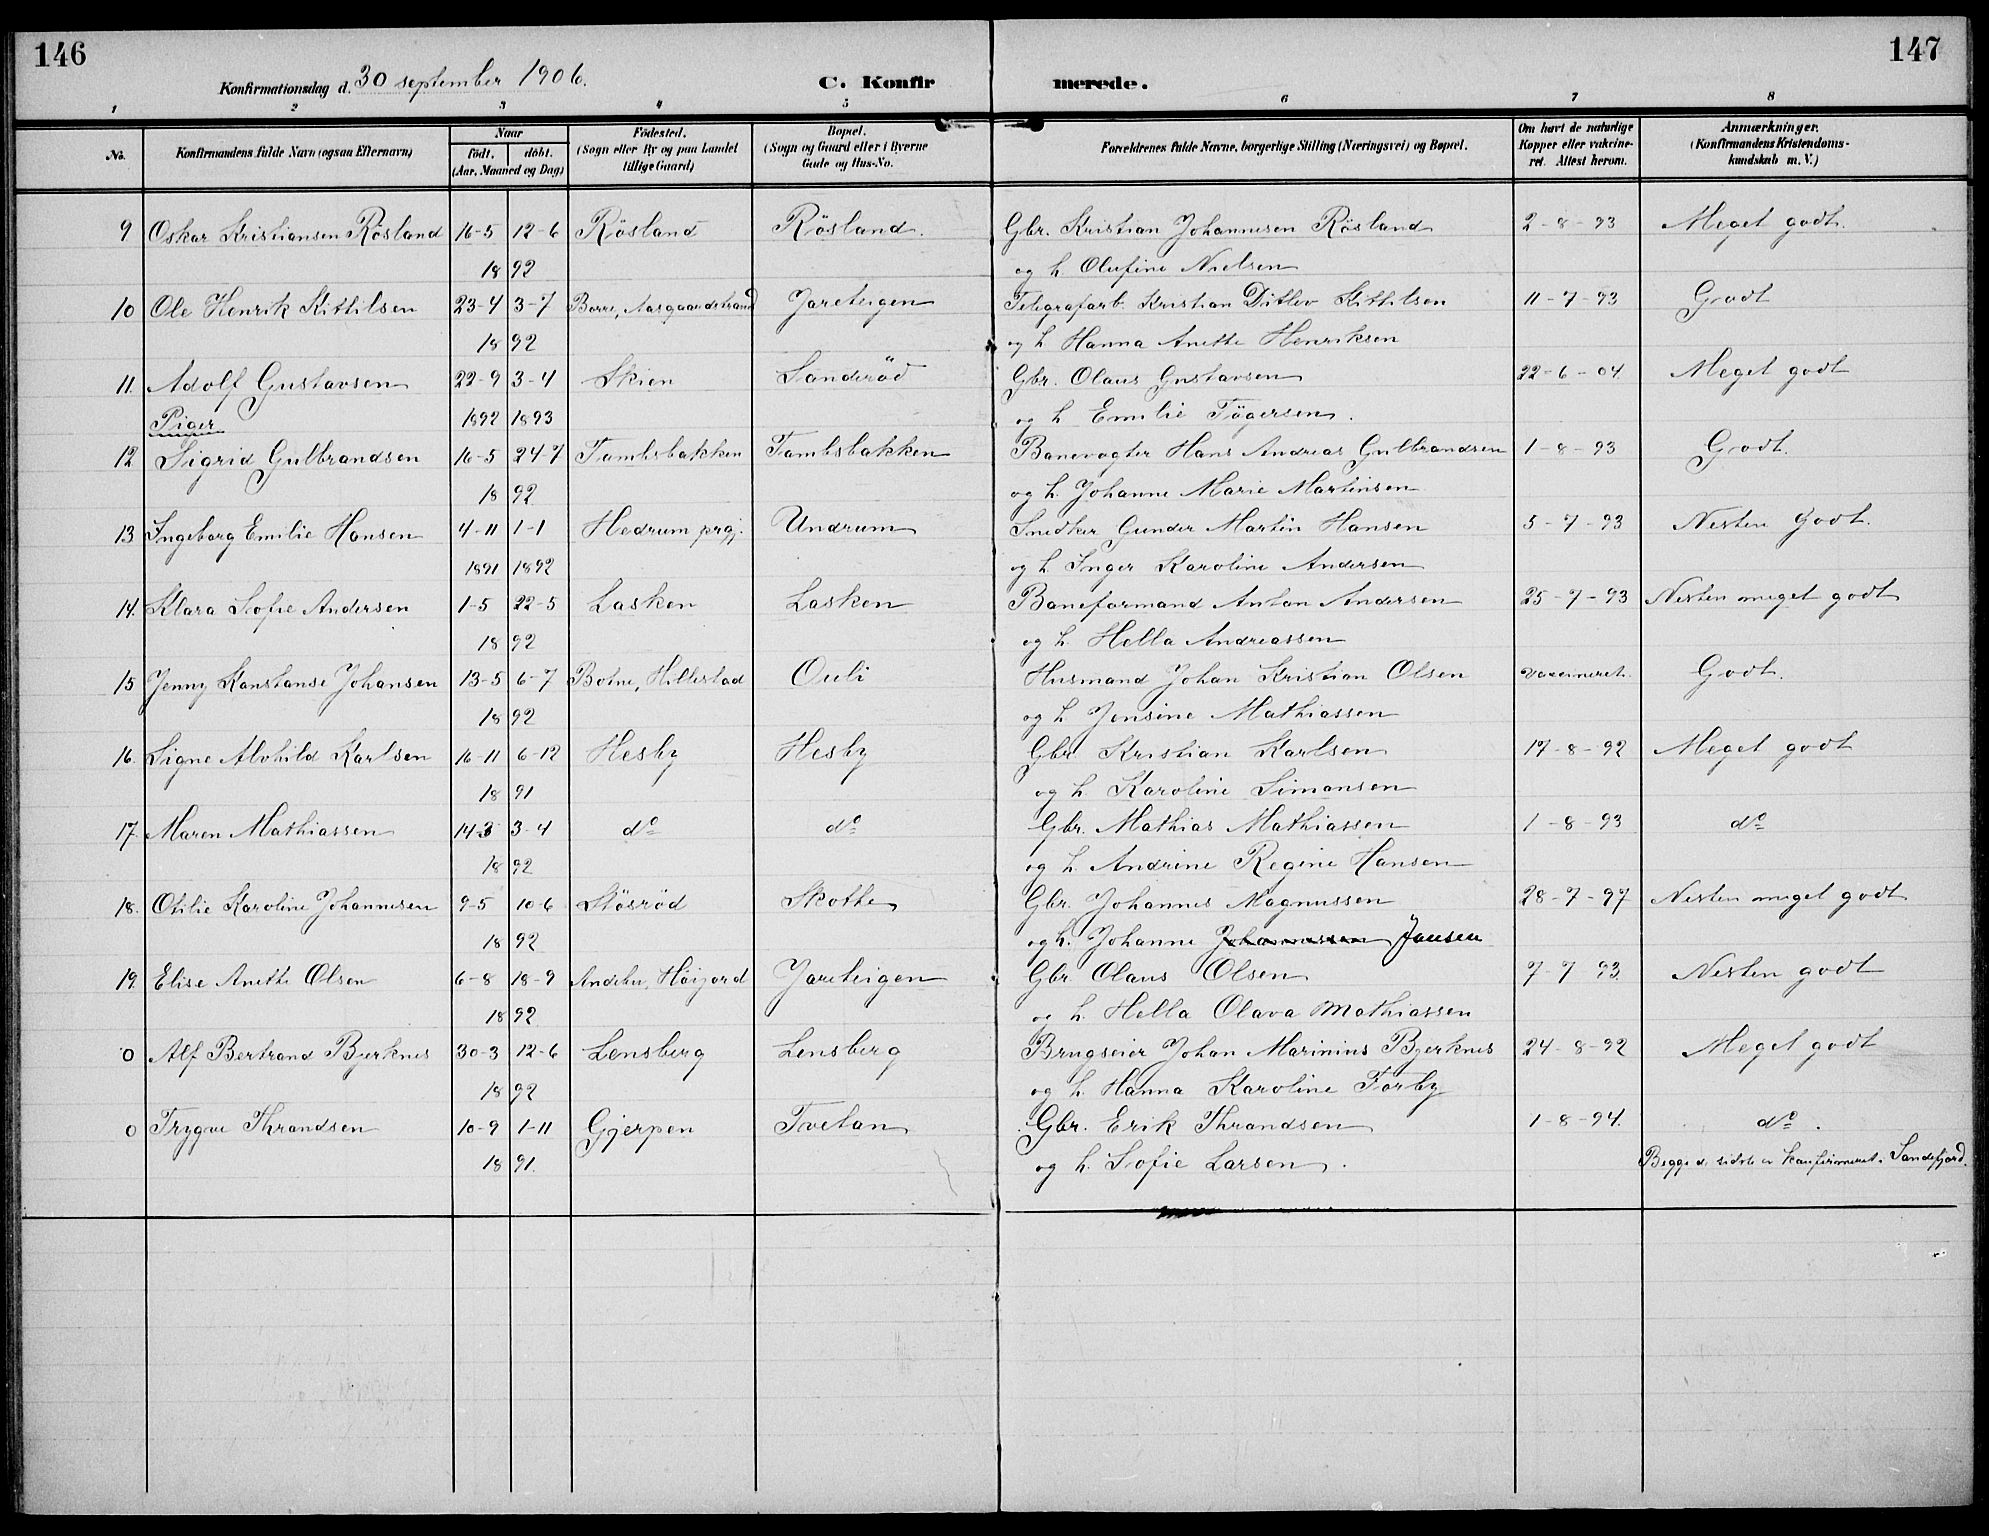 146
147
Konfirmationsdag d. 30 september 1906.
C. Konfirmerede.
1 2 3 4 5 6 7 8
No.
Konfirmandens fulde Navn (ogsaa Efternavn)
Naar
født. døbt.
(Aar, Maaned og Dag)
Fødested.
(Sogn eller By og paa Landet
tillige Gaard)
Bopæl.
(Sogn og Gaard eller i Byerne
Gade og Hus-No.
Forældrenes fulde Navne, borgerlige Stilling (Næringsvei) og Bopæl.
Om havt de naturlige
Kopper eller vakcine-
ret. Attest herom.
Anmærkninger.
(Konfirmandens Kristendoms-
kundskab m. V.)
9 Oskar Kristiansen Røsland 16-5 12-6 Røsland Røsland. Gbr. Kristian Johannesen Røsland 2-8-93 Meget godt.
18 92 og h. Olufine Nielsen
10 Ole Henrik Kittilsen 23-4 3-7 Borre, Aasgaardstrand Jareteigen Telegrafarb. Kristian Ditlev Kittilsen 11-7-93 Godt
18 92 og h Hanna Anette Henriksen
11. Adolf Gustavsen 22-9 3-4 Skien Sanderød Gbr. Olaus Gustavsen 22-6-04. Meget godt
Piger 1892 1893 og h Emilie Tøgersen.
12 Sigrid Gulbrandsen 16-5 24-7 Tambsbakken Tambsbakken Banevogter Hans Andreas Gulbrandsen 1-8-93 Godt.
18 92 og h. Johanne Marie Martinsen
13 Ingeborg Emilie Hansen 4-11 1-1 Hedrum prgj. Undrum Snedker Gunder Martin Hansen 5-7-93 Nesten Godt.
1891 1892 og h Inger Karoline Andersen
14. Klara Sofie Andersen 1-5 22-5 Lasken Lasken Baneformand Anton Andersen 25-7-93 Nesten meget godt
18 92 og h. Hella Andreassen
15 Jenny Konstanse Johansen 13-5 6-7 Botne, Hillestad Ouli Husmand Johan Kristian Olsen vaccineret. Godt.
18 92 og h Jonsine Mathiassen
16. Signe Alvhild Karlsen 16-11 6-12 Hesby Hesby Gbr Kristian Karlsen 17-8-92 Meget godt
18 91 og h Karoline Simonsen
17. Maren Mathiassen 14-3 3-4 do do Gbr. Mathias Mathiassen 1-8-93 do
18 92 og h. Andrine Regine Hansen
18. Otilie Karoline Johannesen 9-5 10-6 Støsrød Skotte Gbr. Johannes Magnussen 28-7-97 Nesten meget godt
18 92 og h. Johanne Johannessen Jansen
19. Elise Anette Olsen 6-8 18-9 Andebu, Høijord Jareteigen Gbr Olaus Olsen 7-7-93. Nesten godt
18 92 og h. Hella Olava Mathiassen
0 Alf Bertrand Bjerknes 30-3 12-6 Lensberg Lensberg Brugseier Johan Marinius Bjerknes 24-8-92 Meget godt
18 92 og h. Hanna Karoline Forby
0 Trygve Thrandsen 10-9 1-11 Gjerpen Tvetan Gbr. Erik Thrandsen 1-8-94. do.
18 91. og h. Sofie Larsen. Begge d. sidste er konfirmeret i Sandefjord.